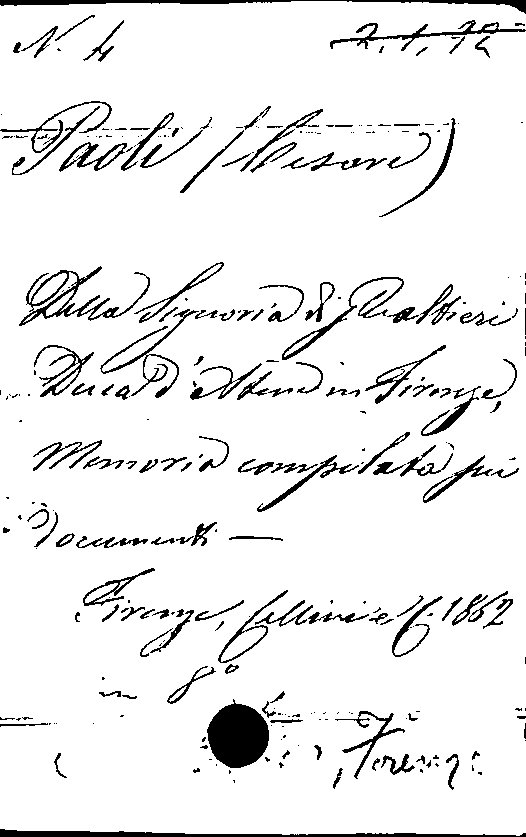 N. 4 2.1.12
Paoli (Cesare)
Della Signoria di Gualtieri
Duca d'Atene in Firenze,
Memoria compilata pei
documenti —
Firenze, Cellini e C. 1862
in 8º
Firenze